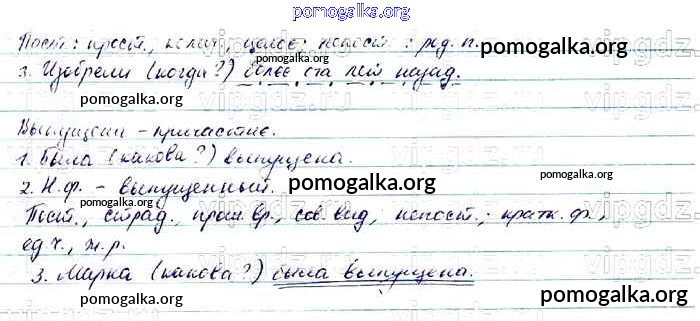 pomogalka.org
Пост.: прост., колич., целое; непост.: род. п.
pomogalka.org
3. Изобрели (когда?) более ста лет назад.
pomogalka.org
pomogalka.org
Выпущена – причастие.
pomogalka.org
1. Была (какова?) выпущена.
2. Н.ф. – выпущенный.
pomogalka.org
Пост., страд., прош. вр., сов. вид, непост.: кратк. ф.,
ед. ч., ж. р.
pomogalka.org
3. Марка (какова?) была выпущена.
pomogalka.org
pomogalka.org
pomogalka.org